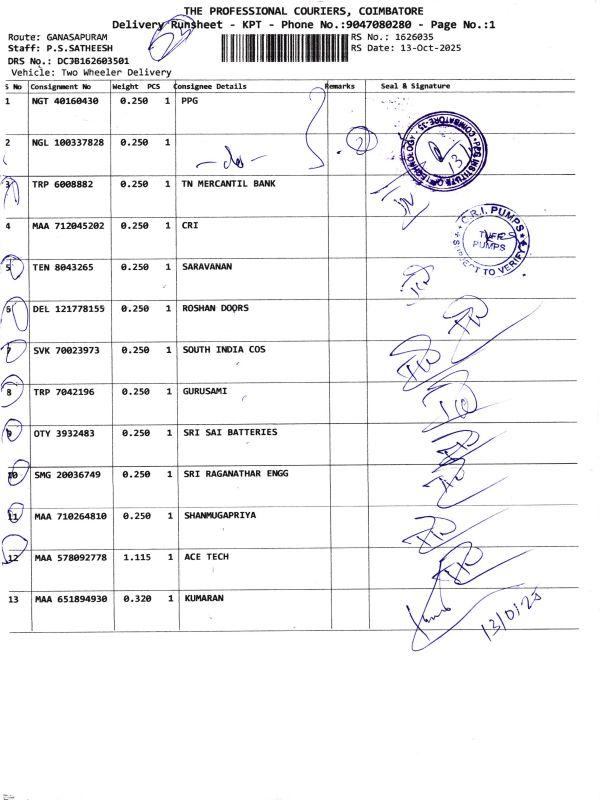 THE PROFESSIONAL COURIERS, COIMBATORE
Delivery Runsheet - KPT - Phone No.:9047080280 - Page No.:1
Route: GANASAPURAM RS No.: 1626035
Staff: P.S.SATHEESH RS Date: 13-Oct-2025
DRS No.: DCJB162603501
Vehicle: Two Wheeler Delivery
S No Consignment No Weight PCS Consignee Details Remarks Seal & Signature
1 NGT 40160430 0.250 1 PPG
2 NGL 100337828 0.250 1 -do- 2
3 TRP 6008882 0.250 1 TN MERCANTIL BANK
4 MAA 712045202 0.250 1 CRI
C.R.I. PUMPS
PUMPS
SUBJECT TO VERIFY
5 TEN 8043265 0.250 1 SARAVANAN
6 DEL 121778155 0.250 1 ROSHAN DOORS
7 SVK 70023973 0.250 1 SOUTH INDIA COS
8 TRP 7042196 0.250 1 GURUSAMI
9 OTY 3932483 0.250 1 SRI SAI BATTERIES
10 SMG 20036749 0.250 1 SRI RAGANATHAR ENGG
11 MAA 710264810 0.250 1 SHANMUGAPRIYA
12 MAA 578092778 1.115 1 ACE TECH
13 MAA 651894930 0.320 1 KUMARAN